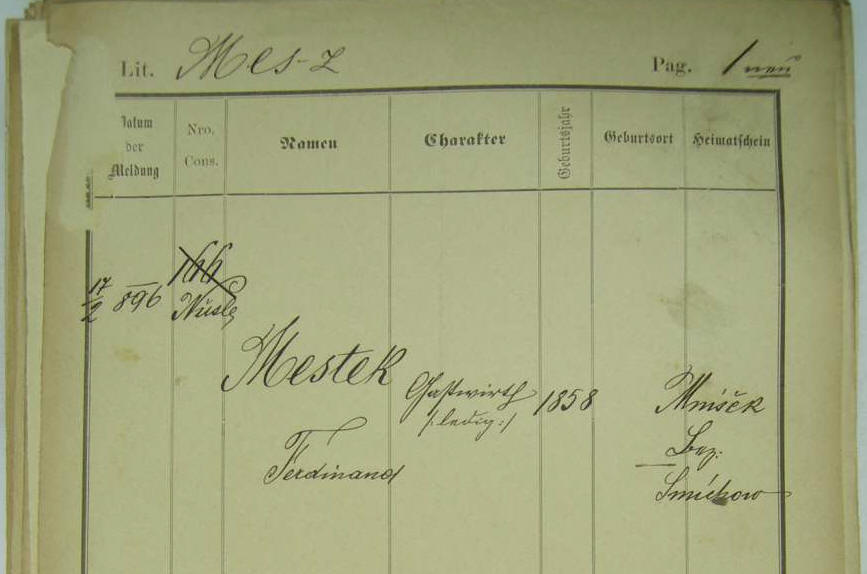 Lit. Mes-z Pag. 1 neu
Datum der Meldung Nro. Cons. Namen Charakter Geburtsjahr Geburtsort Heimatschein
166
17/2 896 Nusle
Mestek Gastwirth 1858 Mníšek
/: ledig :/
Bez.
Ferdinand Smíchow